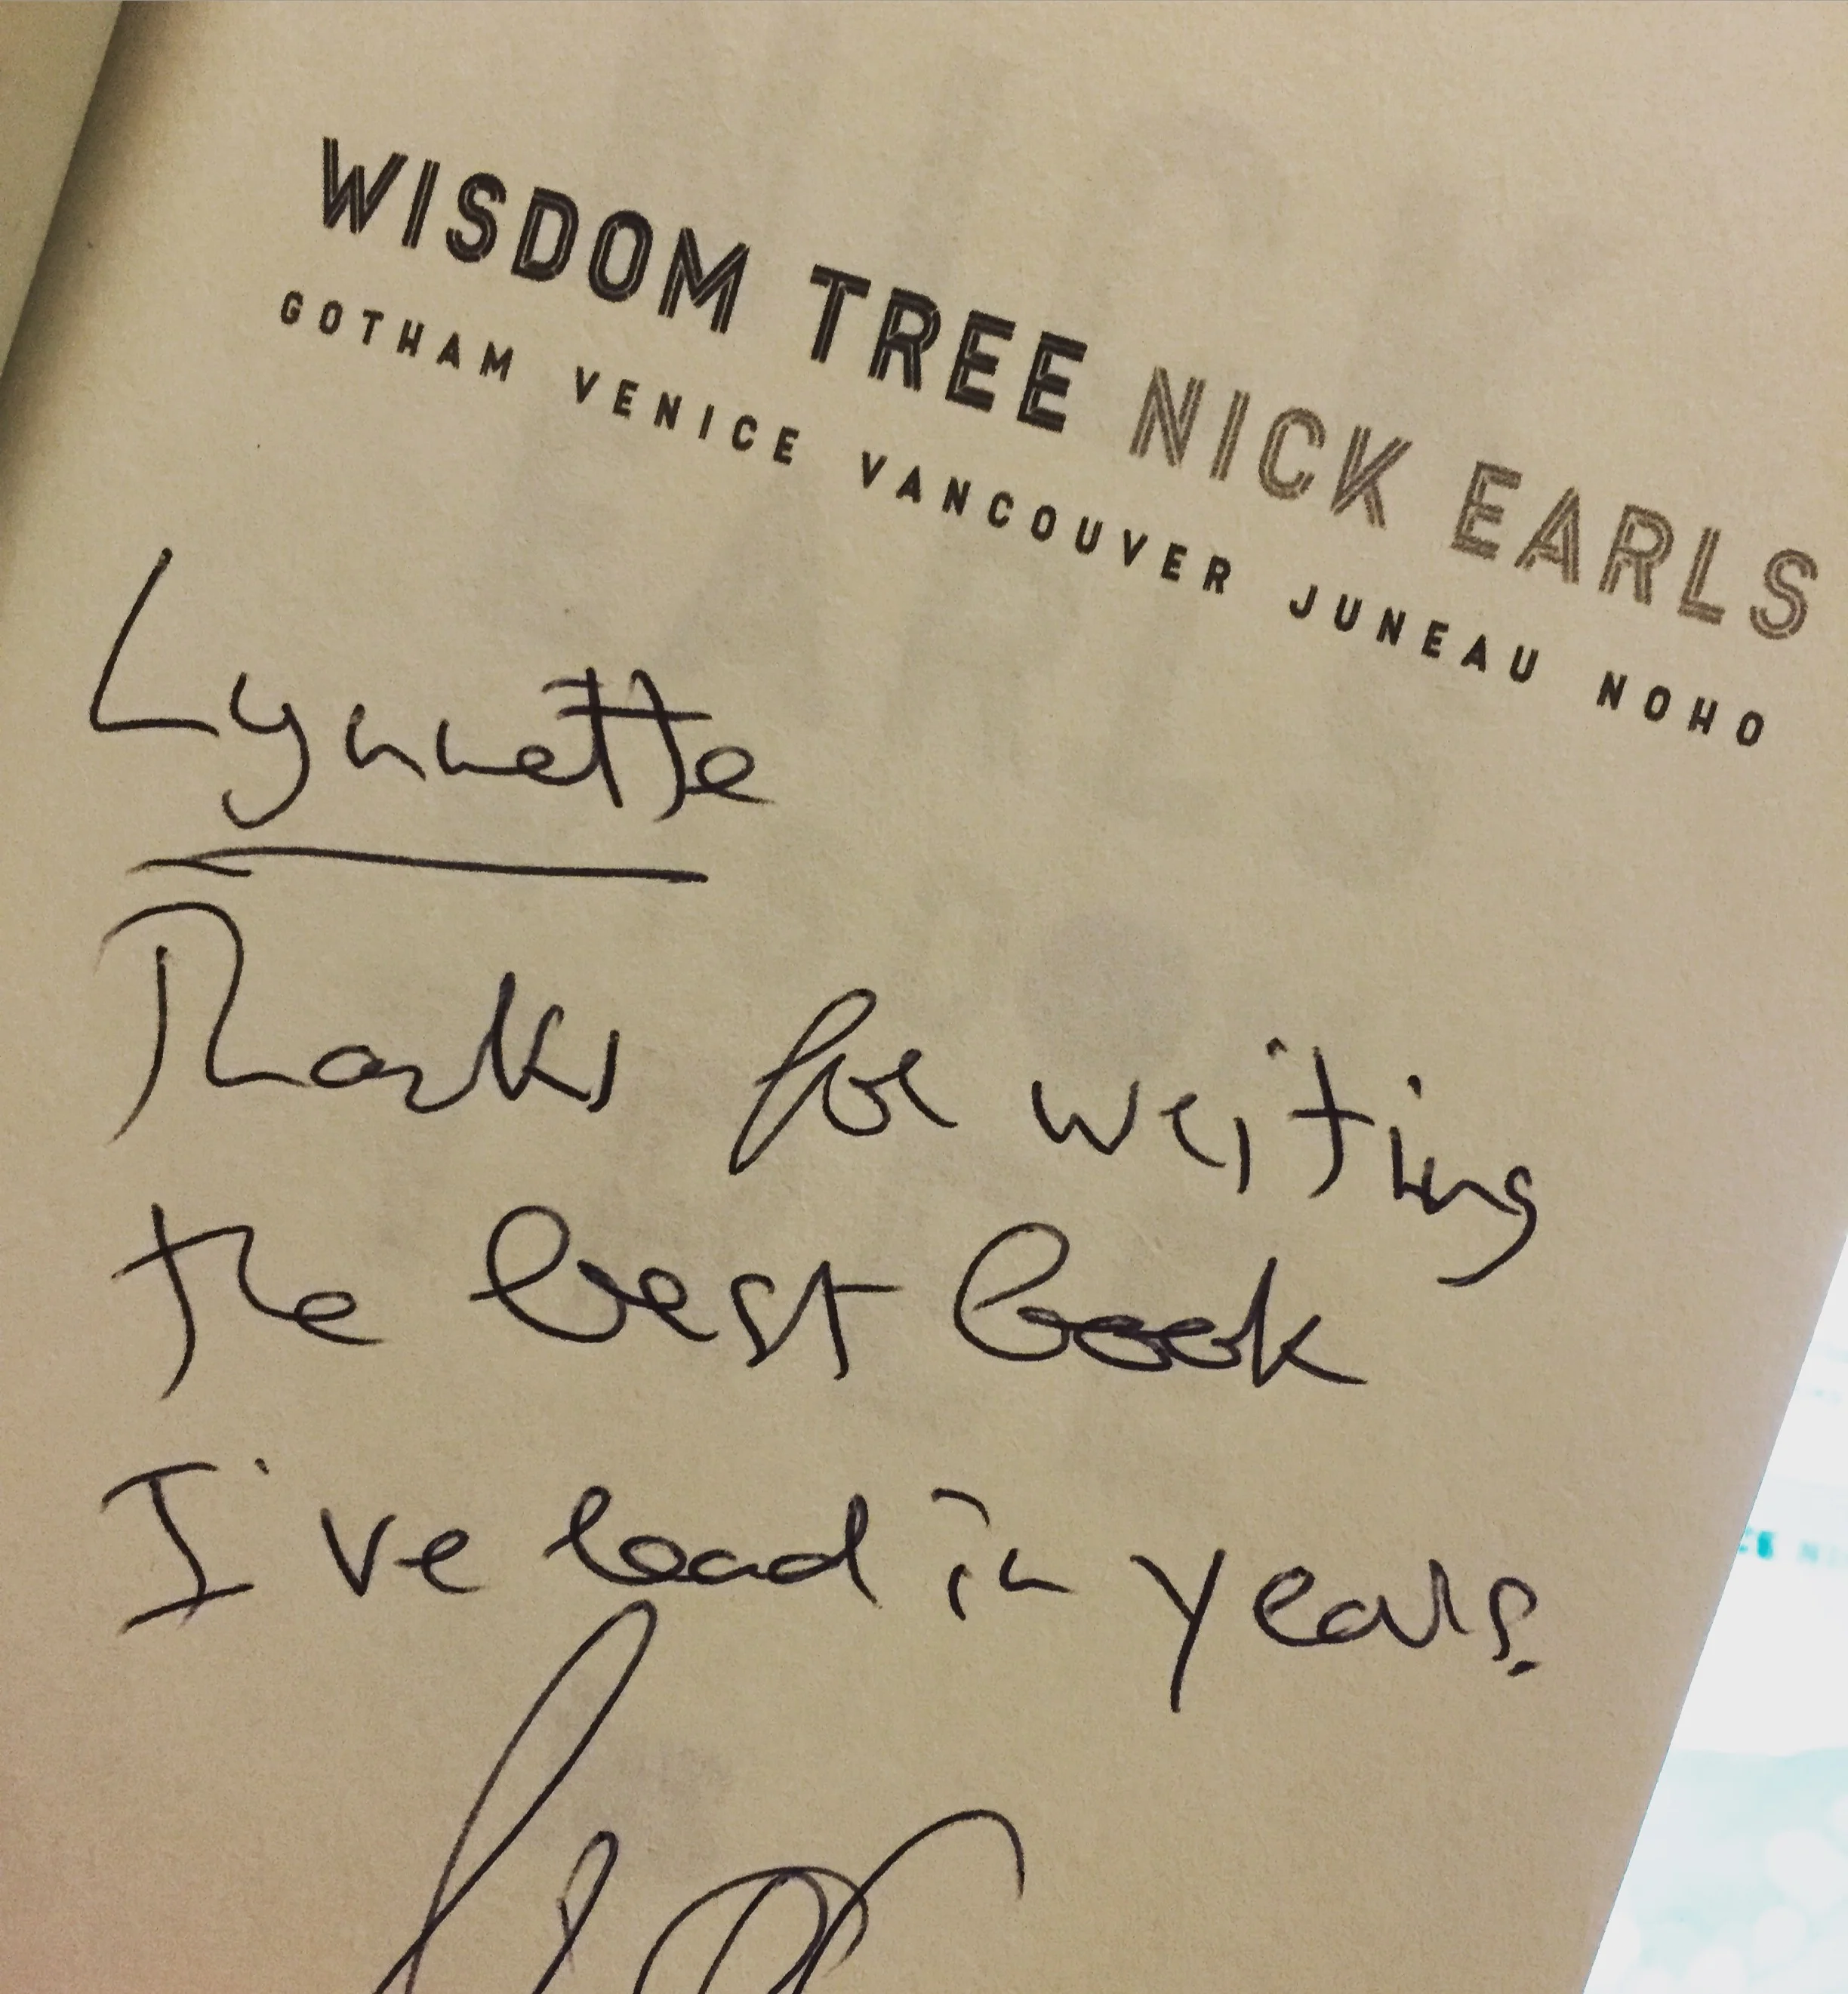 WISDOM TREE NICK EARLS
GOTHAM VENICE VANCOUVER JUNEAU NOHO
Lynnette
Thanks for writing
the best book
I've read in years.